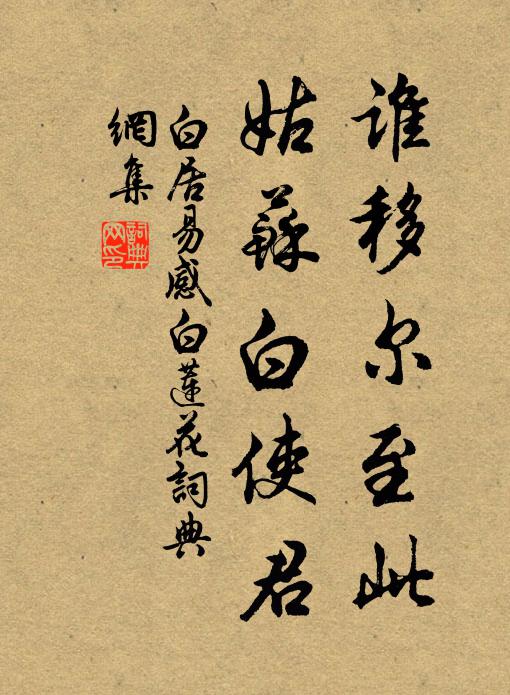 谁移尔至此
姑蘇白使君
白居易感白蓮花詞典
網集
詞典
网印